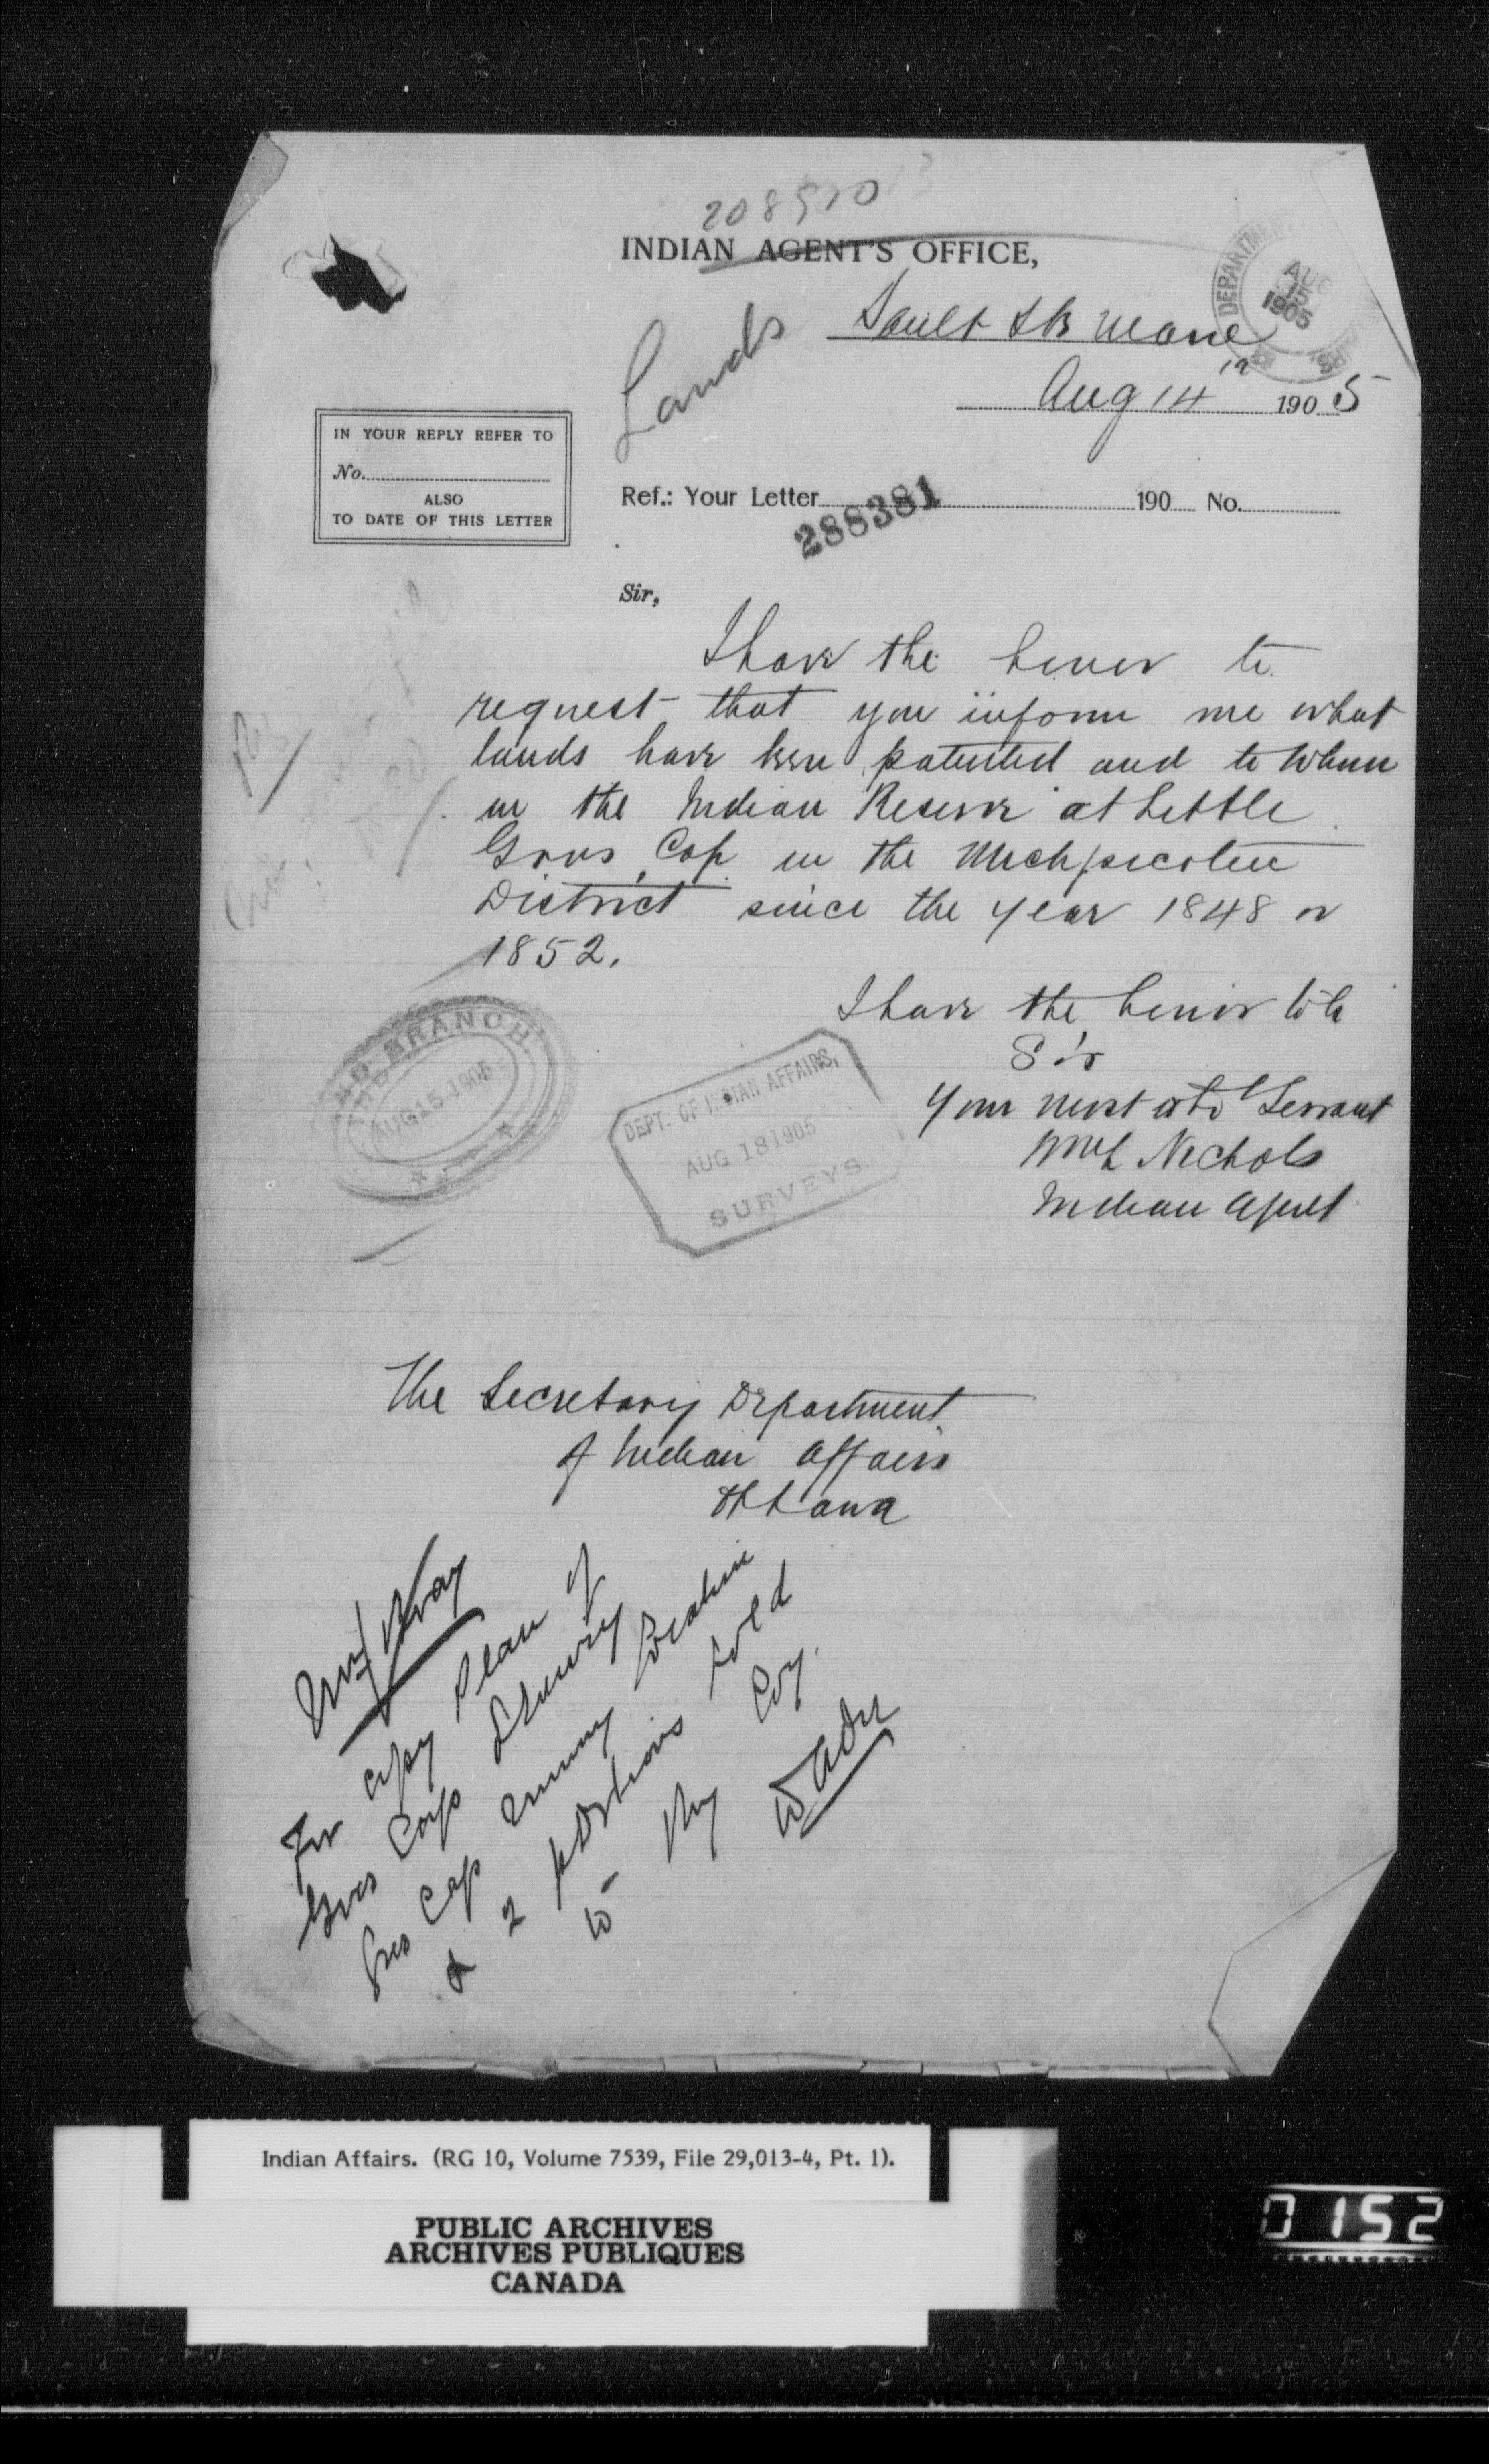 208920
INDIAN AGENT'S OFFICE,
Lands
Sault Ste Marie
Aug 14th 1905
DEPARTMENT
AUG
15
1905
IN YOUR REPLY REFER TO
No.
ALSO
TO DATE OF THIS LETTER
Ref.: Your Letter 190 No.
288381
Sir,
I have the honor to
request that you inform me what
lands have been patented and to whom
in the Indian Reserve at Little
Gros Cap in the Michipicoten
District since the year 1848 or
1852.
I have the honor to be
Sir
Your most obt Servant
Wm L Nichols
Indian Agent
LAND BRANCH
AUG 15 1905
DEPT. OF INDIAN AFFAIRS,
AUG 18 1905
SURVEYS
The Secretary Department
of Indian Affairs
Ottawa
Mr Bray
For copy plan of
Gros Cap
Gros Cap mining location
& 2 portions sold
to Ry Coy.
Indian Affairs. (RG 10, Volume 7539, File 29,013-4, Pt. 1).
PUBLIC ARCHIVES
ARCHIVES PUBLIQUES
CANADA
0152